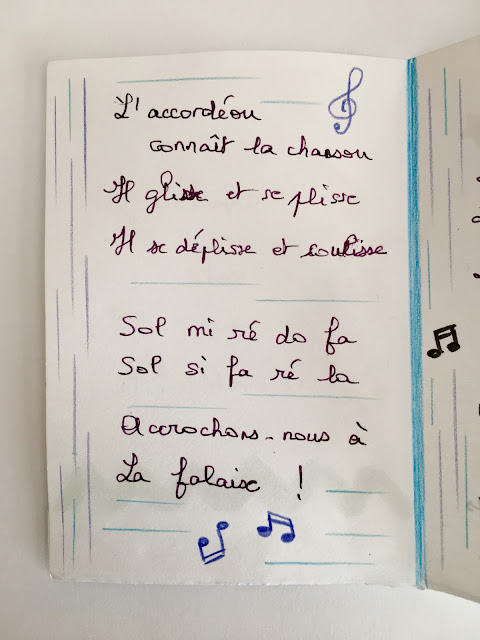 L'accordéon
connaît la chanson
Il glisse et se plisse
Il se déplisse et coulisse
Sol mi ré do fa
Sol si fa ré la
Accrochons-nous à
La falaise !